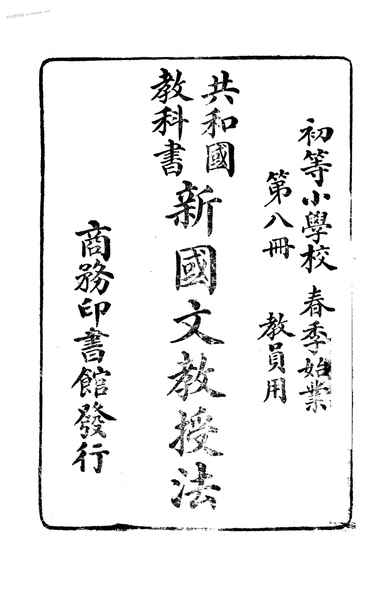 初等小學校 春季始業
第八冊 教員用
共和國
教科書
新國文教授法
商務印書館發行